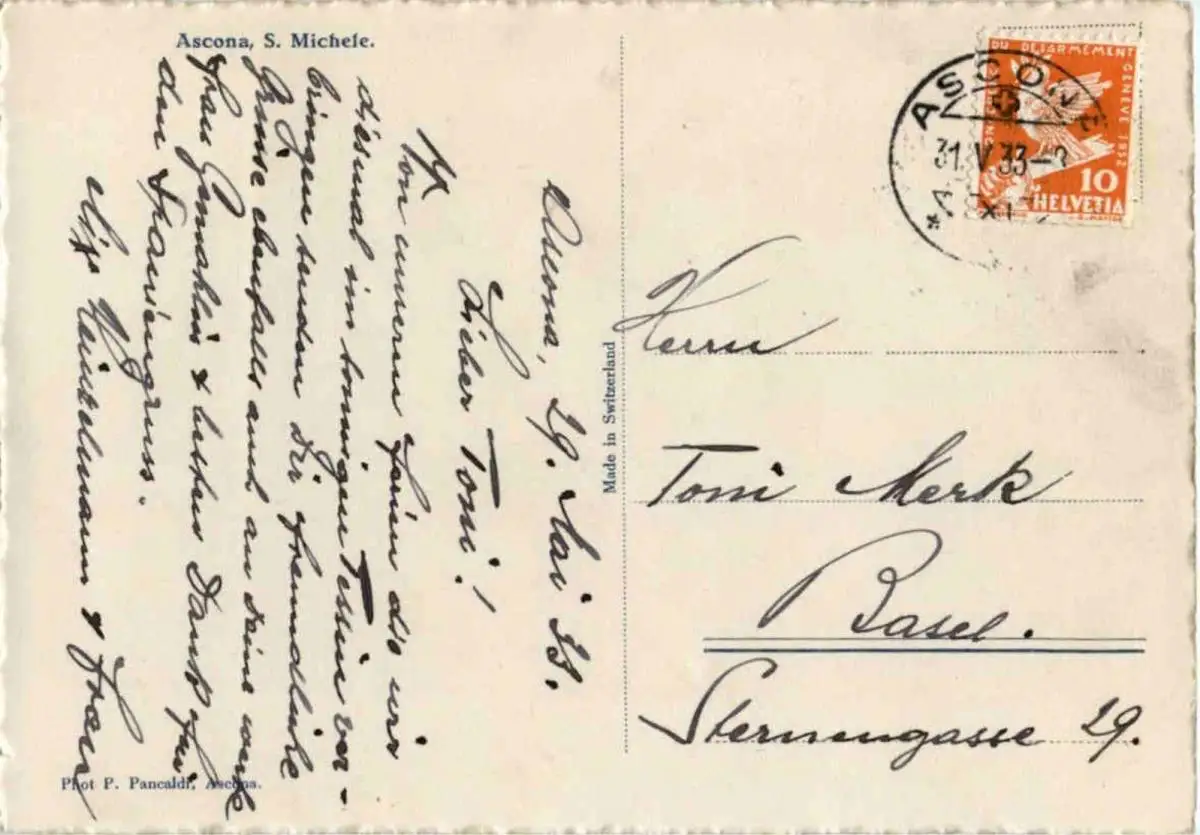 Ascona, S. Michele.
Ascona, 29. Mai 33.
Lieber Toni!
Von unsern Ferien die wir
diesmal im sonnigen Tessin ver-
bringen senden Dir freundliche
Grüsse ebenfalls auch an Deine werte
Frau Gemahlin & besten Dank für
den
& Frau
Phot P. Pancaldi, Ascona.
Made in Switzerland
DU DÉSARMEMENT GENÈVE 1932
10
HELVETIA
ASCONA
31.V.33
Herrn
Toni Merk
Basel.
Sternengasse 29.